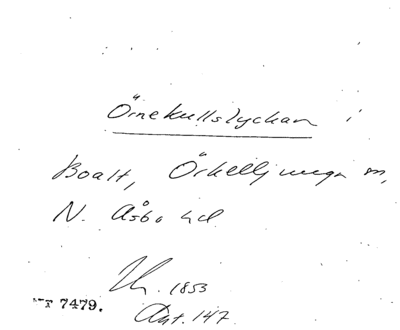 Örnekullslyckan i
Boalt, Örkelljunga sn,
N. Åsbo hd
1853
7479.
Akt. 147